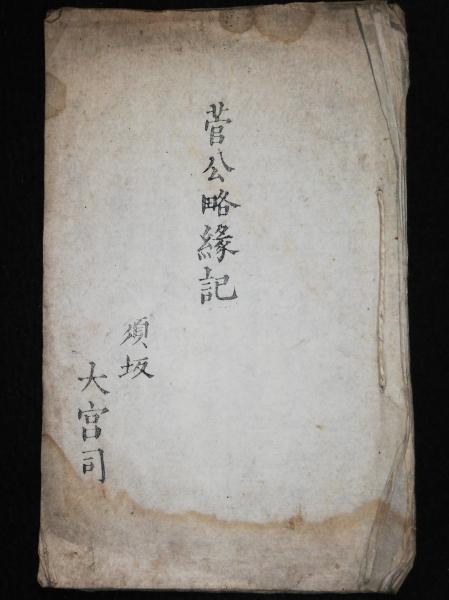 菅公略縁記
須坂
大宮司